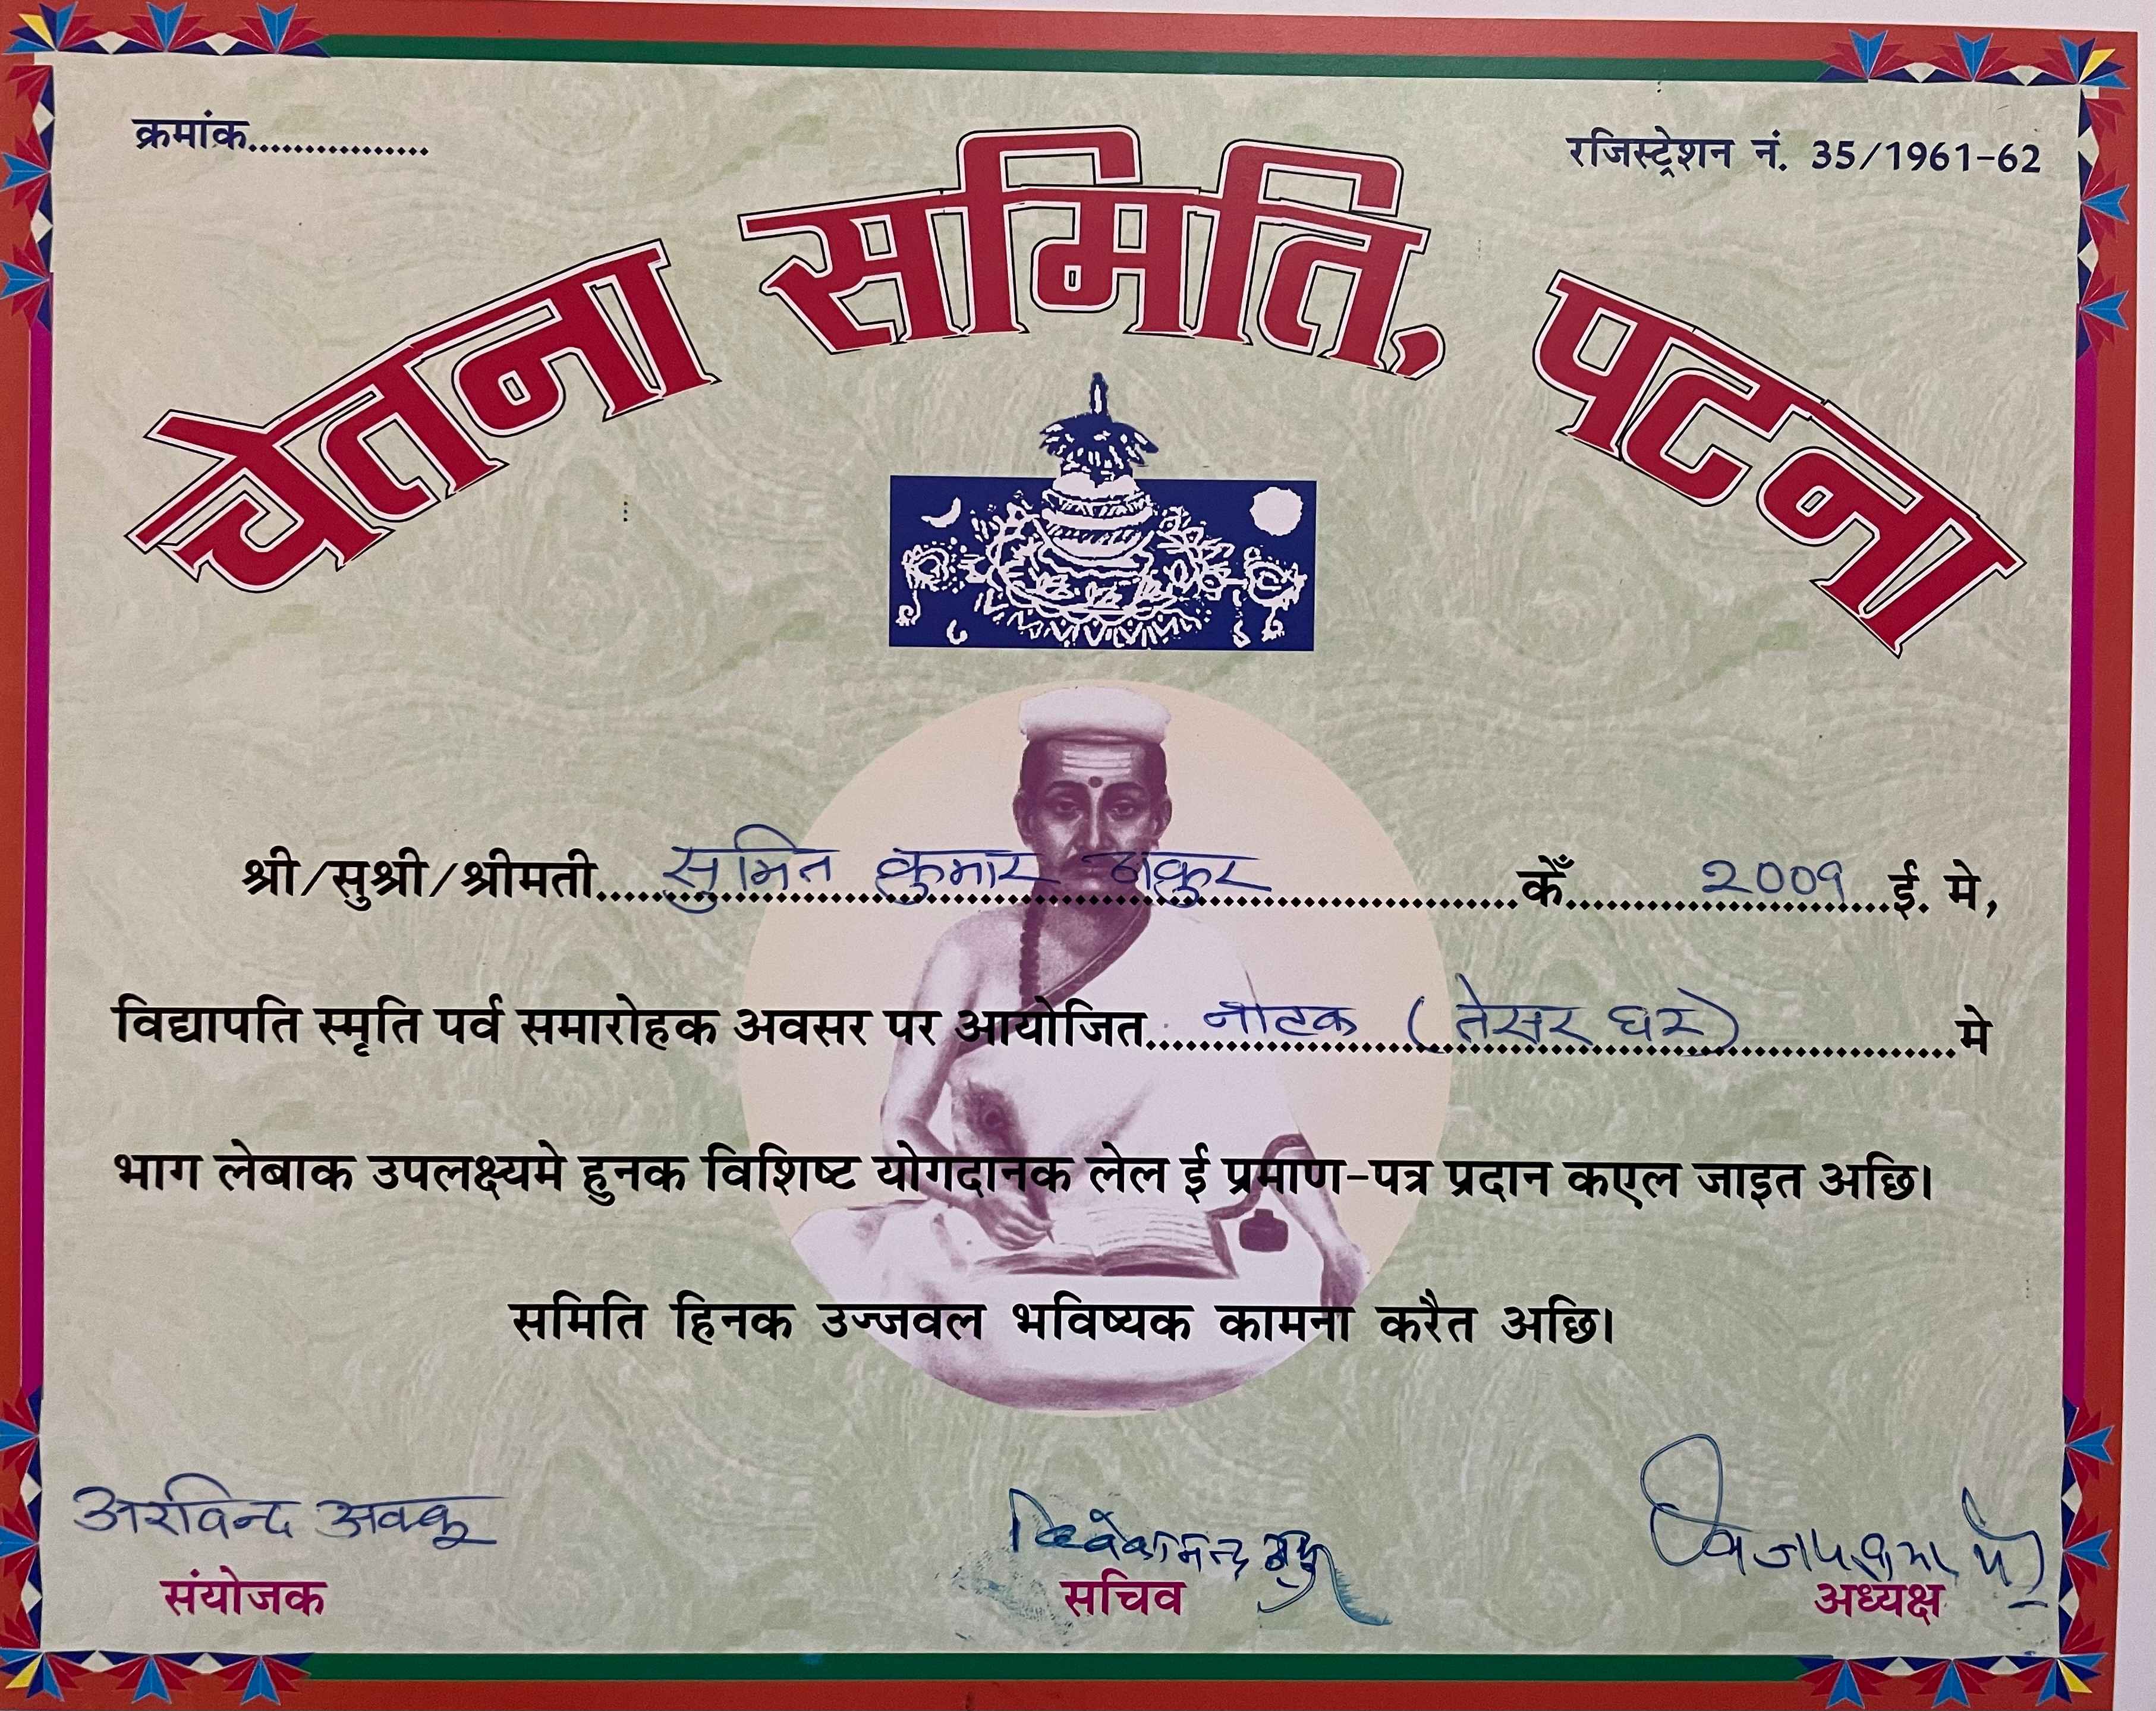 क्रमांक................
रजिस्ट्रेशन नं. 35/1961-62
चेतना समिति, पटना
श्री/सुश्री/श्रीमती....सुमित कुमार ठाकुर....केँ....2009....ई. मे,
विद्यापति स्मृति पर्व समारोहक अवसर पर आयोजित....नाटक (तेसर घर)....मे
भाग लेबाक उपलक्ष्यमे हुनक विशिष्ट योगदानक लेल ई प्रमाण-पत्र प्रदान कएल जाइत अछि।
समिति हिनक उज्जवल भविष्यक कामना करैत अछि।
अरविन्द अक्कू
विवेकानन्द
संयोजक
सचिव
अध्यक्ष